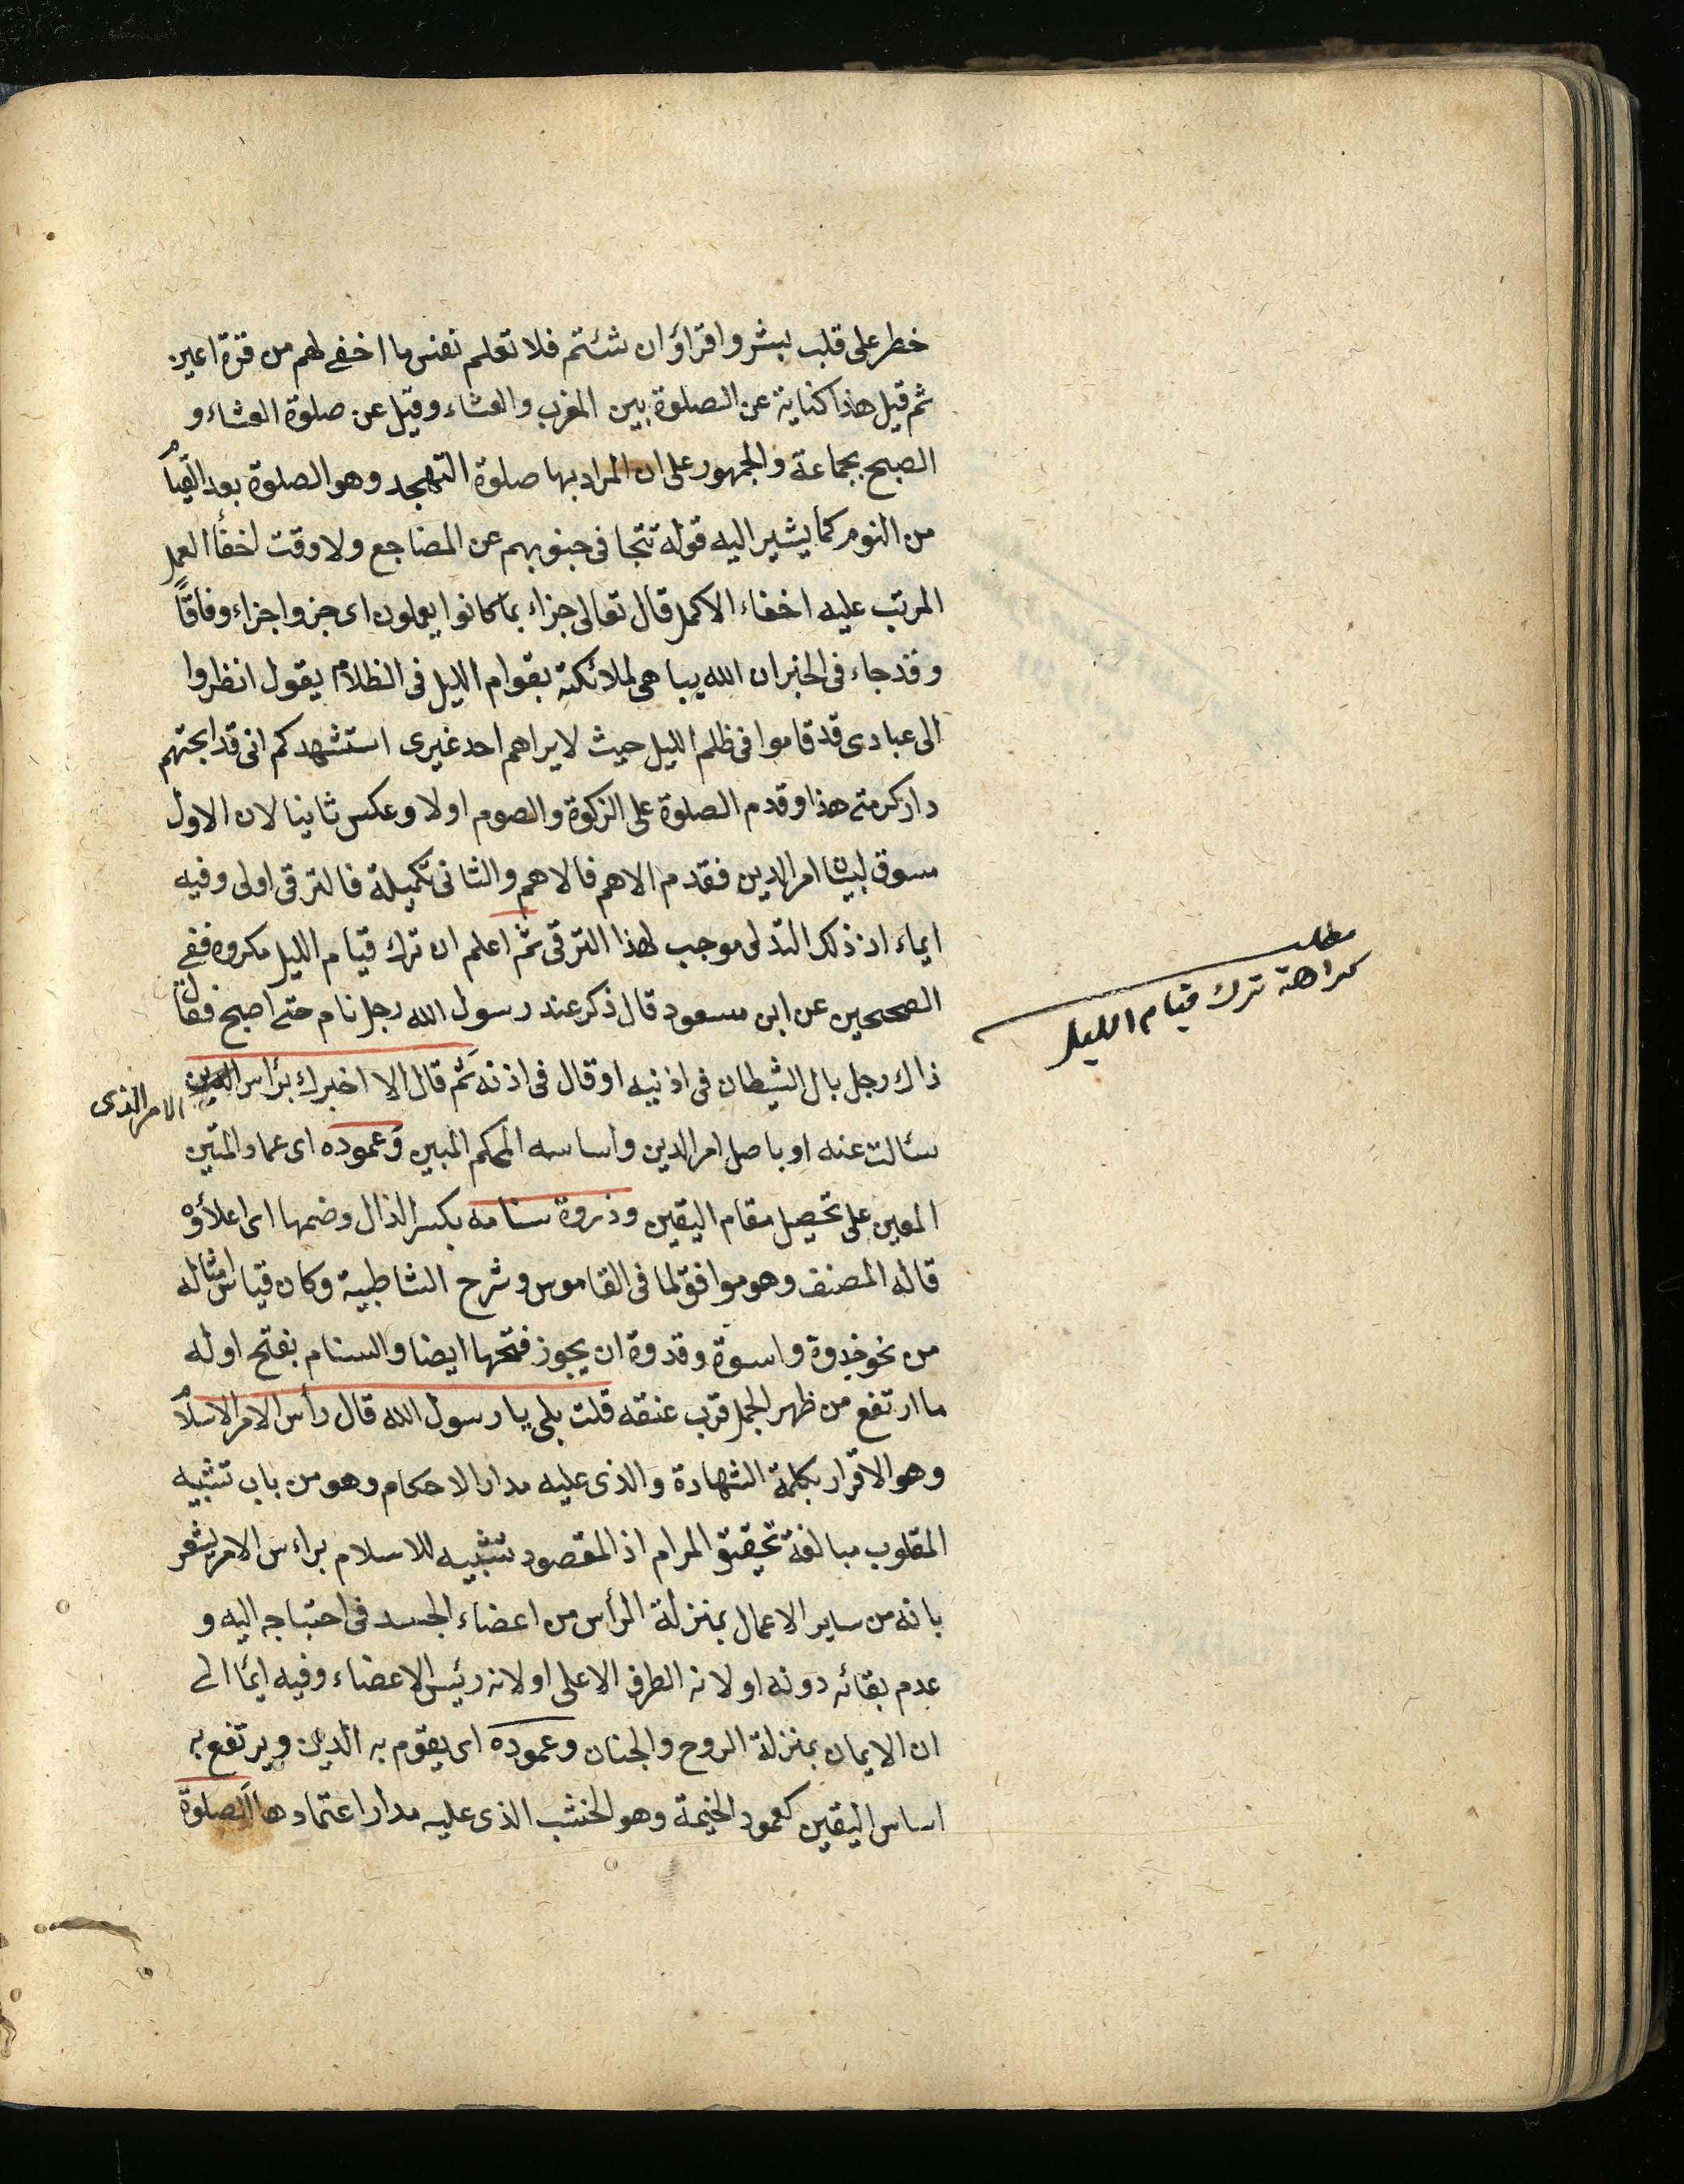 خطر على قلب بشر واقراؤ ان شئتم فلا تعلم نفس ما اخفى لهم من قرة اعين
ثم قيل هذا كناية عن الصلوة بين المغرب والعشاء وقيل عن صلوة العشاء و
الصبح بجماعة والجمهور على ان المراد بها صلوة التهجد وهو الصلوة بعد القيام
من النوم كما يشير اليه قوله تتجافى جنوبهم عن المضاجع ولا وقت لخفأ العمل
المرتب عليه اخفاء الاكمل قال تعالى جزاء بما كانوا يعملون اى جزوا جزاء وفاقاً
وقد جاء فى الخبر ان الله يباهى لملائكته بقوام الليل فى الظلام يقول انظروا
الى عبادى قد قاموا فى ظلم الليل حيث لا يراهم احد غيرى استشهدكم انى قد ابحتهم
دار كرمتى هذا وقدم الصلوة على الزكوة والصوم اولا وعكس ثانيا لان الاول
مسوق لبيان امر الدين فقدم الاهم فالاهم والثانى تكميلة فالترقى اولى وفيه
ايماء ان ذلك التدلى موجب لهذا الترقى ثم اعلم ان ترك قيام الليل مكروه ففى
مطلب
كراهة ترك قيام الليل
الصحيحين عن ابن مسعود قال ذكر عند رسول الله رجل نام حتى اصبح فقال
ذاك رجل بال الشيطان فى اذنيه او قال فى اذنه ثم قال الا اخبرك برأس
الامر الذى
سئالت عنه او باصل امر الدين واساسه المحكم المبين وعموده اى عماد المتين
المعين على تحصيل مقام اليقين وذروة سنامه بكسر الذال وضمها اى اعلاؤه
قاله المصنف وهو موافق لما فى القاموس وشرح الشاطبية وكان قياس امثاله
من نحو خدوة واسوة وقدوة ان يجوز فتحها ايضا والسنام بفتح اوله
ما ارتفع من ظهر الجمل قرب عنقه قلت بلى يا رسول الله قال رأس الامر الاسلام
وهو الاقرار بكلمة الشهادة والذى عليه مدار الاحكام وهو من باب تشبيه
المقلوب مبالغة تحقيق المرام اذ المقصود تشبيه للاسلام براءس الامر يشعر
بانه من ساير الاعمال بمنزلة الرأس من اعضاء الجسد فى احتياجه اليه و
عدم بقائه دونه او لانه الطرف الاعلى او لانه رئيس الاعضاء وفيه ايمأ الى
ان الايمان بمنزلة الروح والجنان وعموده اى يقوم به الدين ويرتفع به
اساس اليقين كعمود الخيمة وهو الخشب الذى عليه مدار اعتمادها الصلوة